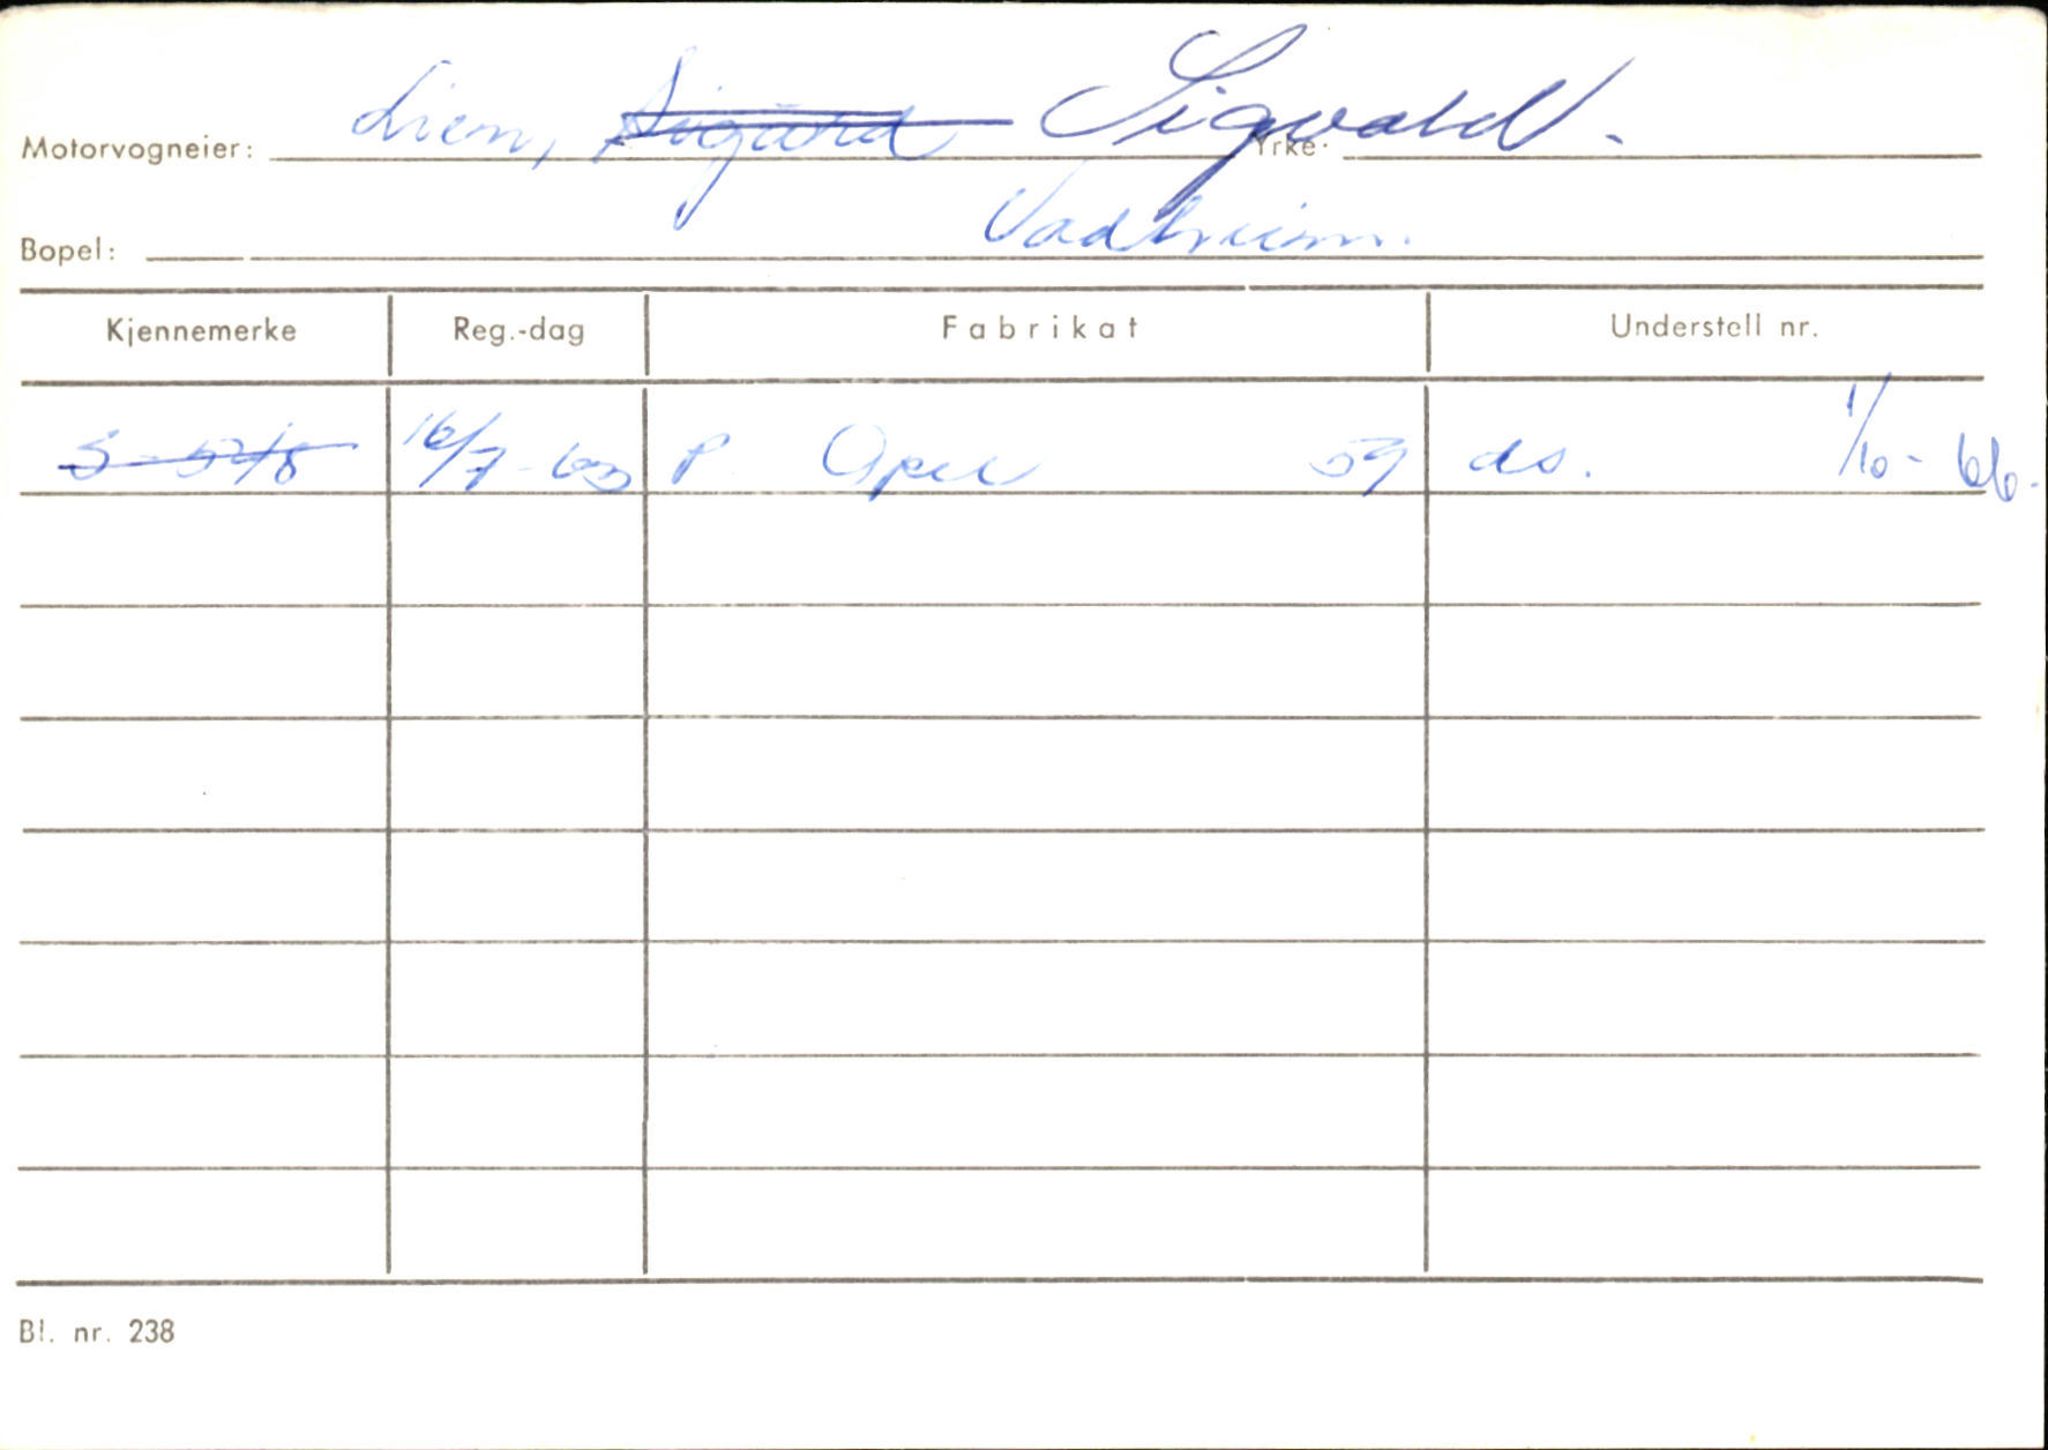 Motorvogneier: Lien, Sigurd Sigvald. Yrke:
Bopel: Vadheim.
Kjennemerke Reg.-dag Fabrikat Understell nr.
16/7-63 P Opel 59 ds. 1/10-66.
Bl. nr. 238